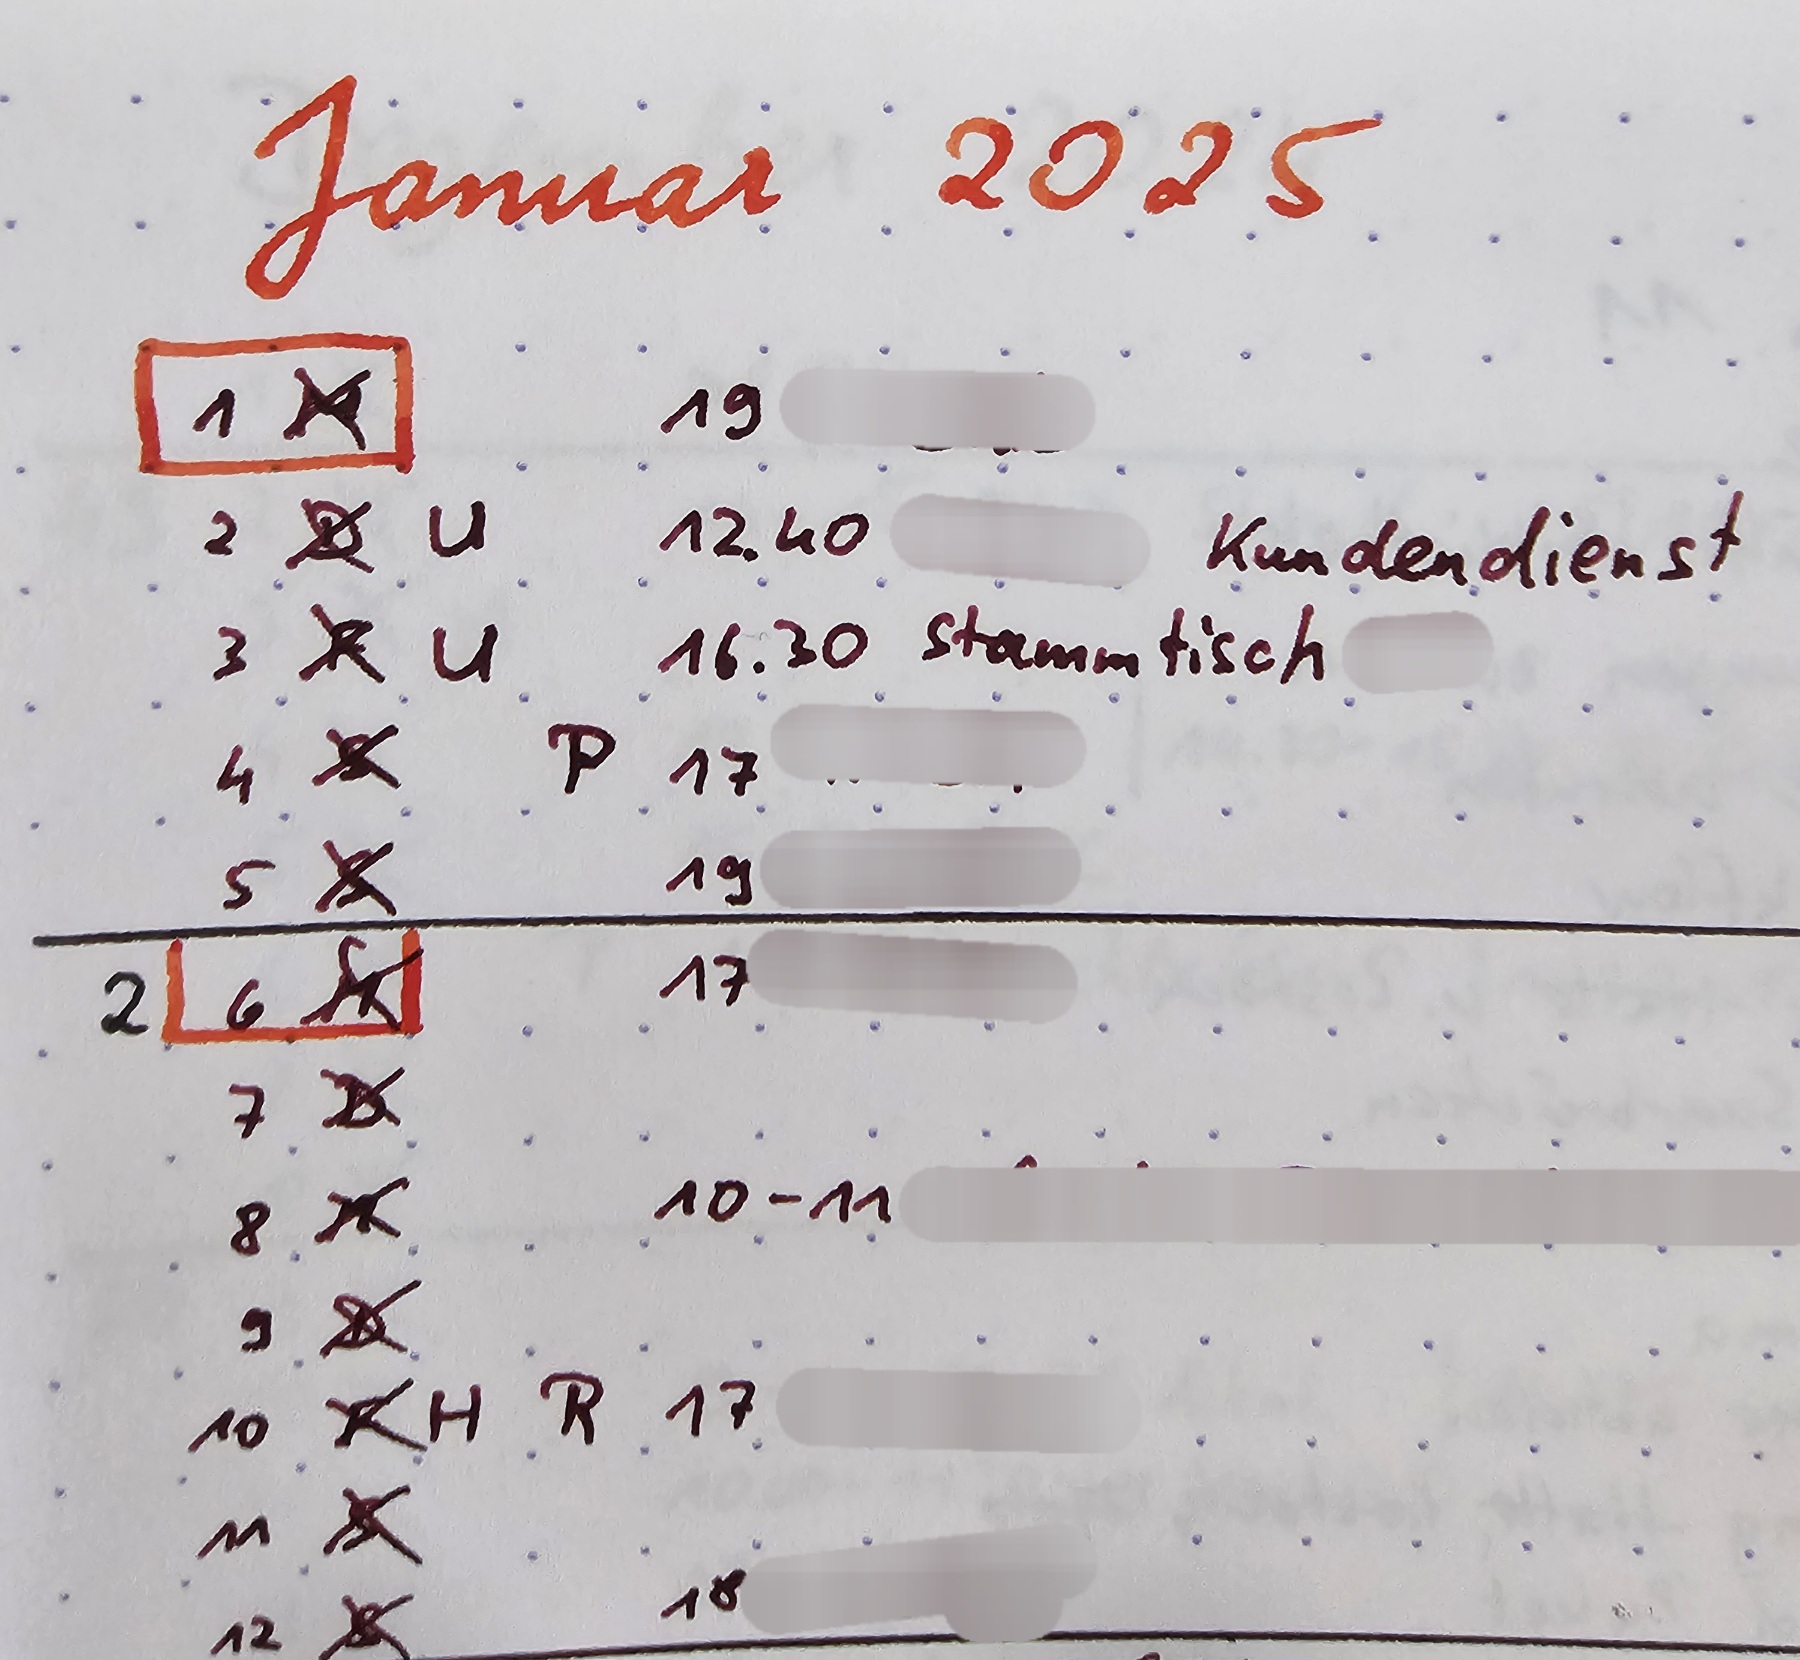 Januar 2025
1 M 19
2 D U 12.40 Kundendienst
3 F U 16.30 Stammtisch
4 S P 17
5 S 19
2 6 M 17
7 D
8 M 10-11
9 D
10 F H R 17
11 S
12 S 18